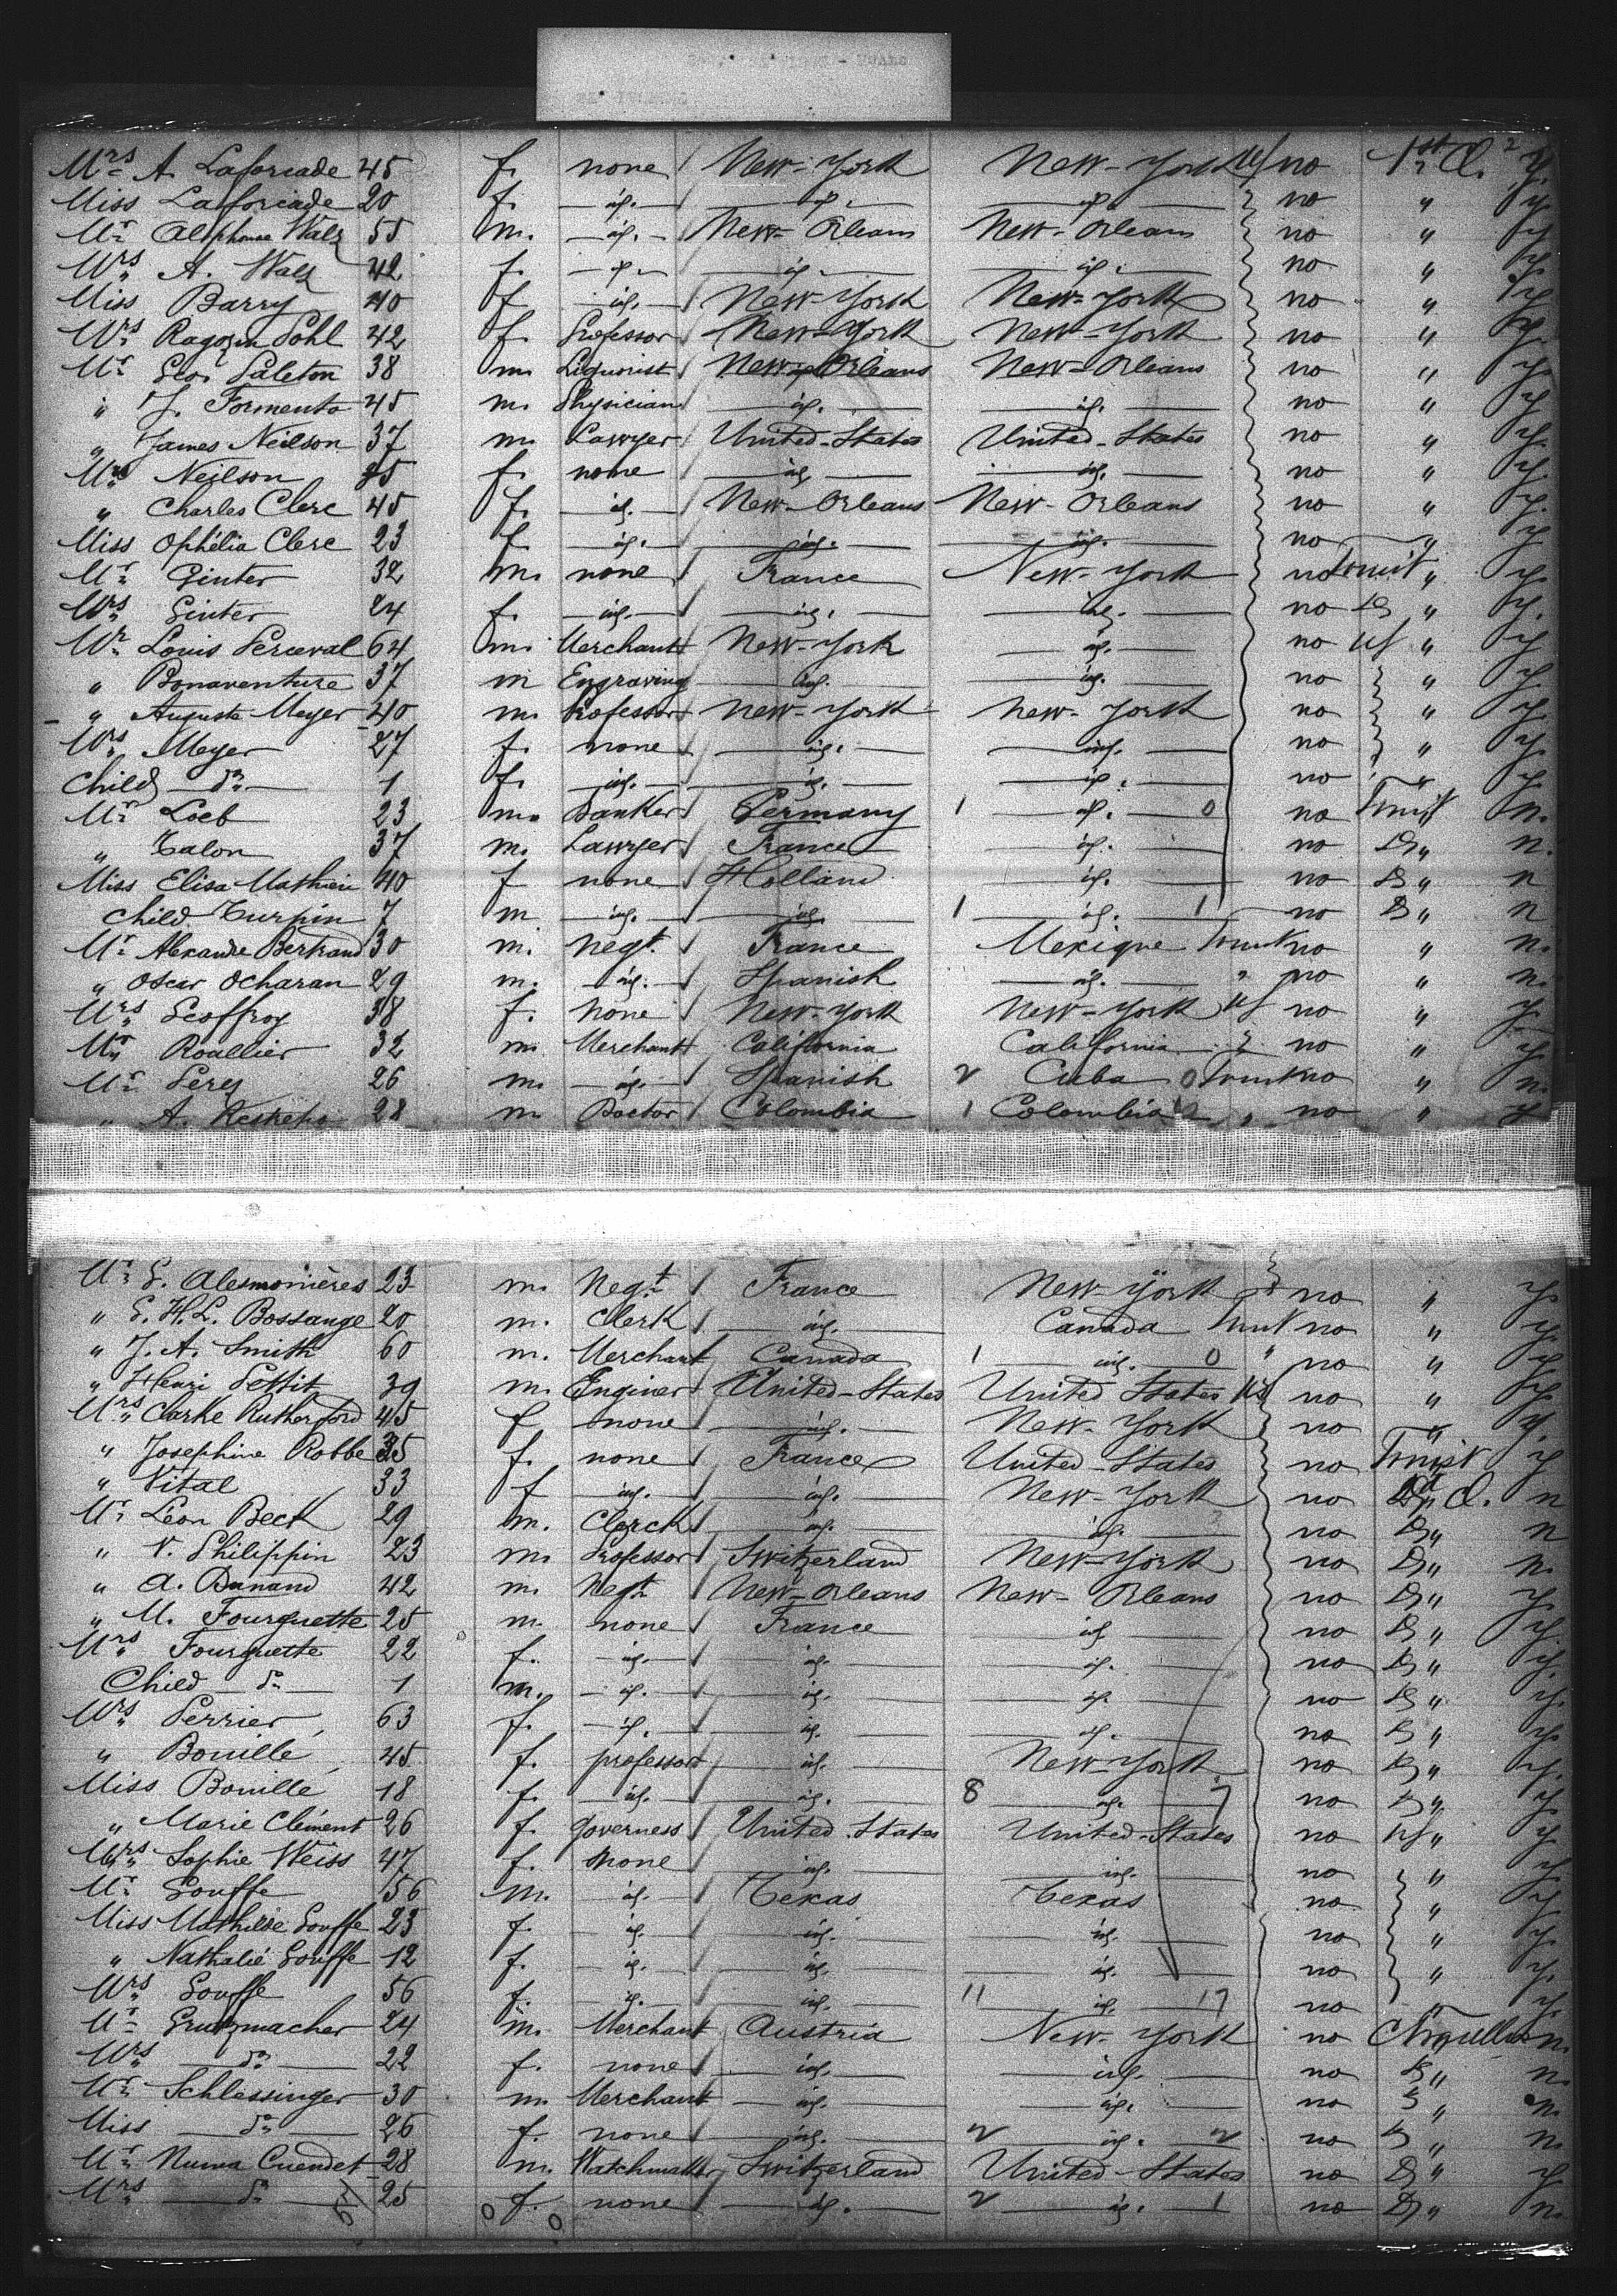 Mrs A. Laforcade 45 f. none New-York New-York us no 1st Cl. y.
Miss Laforcade 20 f. id. id. id. no " y.
Mr Alsphonse Walz 55 m. id. New-Orleans New-Orleans no " y.
Mrs A. Walz 42 f. id. id. id. no " y.
Miss Barry 40 f. id. New-York New-York no " y.
Mrs Ragozin Pohl 42 f. Professor New-York New-York no " y.
Mr Geo. Paleton 38 m. Liquorist New-Orleans New-Orleans no " y.
" J. Formento 45 m. Physician id. id. no " y.
" James Neilson 37 m. Lawyer United-States United-States no " y.
Mrs Neilson f. none id. id. no " y.
" Charles Clerc 45 f. id. New-Orleans New-Orleans no " y.
Miss Ophélia Clerc 23 f. id. id. id. no " y.
Mr Ginter 32 m. none France New-York no Tourist " y.
Mrs Ginter 24 f. id. id. id. no Do " y.
Mr Louis Perceval 64 m. Merchant New-York id. no us " y.
" Bonaventure 37 m Engraving id. id. no " y.
" Auguste Meyer 40 m. Professor New-York New-York no " y.
Mrs Meyer 27 f. none id. id. no " y.
Child do 1 f. id. id. id. no " y.
Mr Loeb 23 m. Banker Germany 1 id. 0 no Tourist n.
" Talon 37 m. Lawyer France id. no Do " n.
Miss Elisa Mathieu 40 f none Holland id. no Do " n
Child Turpin 7 m id. id. 1 id. 1 no Do " n
Mr Alexandre Bertrand 30 m. Negt. France Mexique Tourist no " n.
" Oscar Ocharan 29 m. id. Spanish id. " no " n.
Mrs Geoffroy 38 f. none New-York New-York us no " y.
Mr Roallier 32 m. Merchant California California no " y.
Mr Perez 26 m. id. Spanish 2 Cuba 0 Tourist no " n.
" A. Restrepo 28 m Doctor Colombia 1 Colombia " no " y
Mr G. Alesmonières 23 m. Negt France New-York no " y.
" G. H. L. Bossange 20 m. Clerk id. Canada Tourist no " y.
" J. A. Smith 60 m. Merchant Canada 1 id. 0 " no " y.
" Henri Pettit 39 m. Enginer United-States United States us no " y.
Mrs Clarke Rutherford 45 f none id. New-York no " y.
" Josephine Robbe 35 f. none France United-States no Tourist y
" Vital 33 f id. id. New-York no 2d Cl. n
Mr Léon Beck 29 m. Clerck id. id. no Do " n
" V. Philippin 23 m. Professor Switzerland New-York no Do " n.
" A. Dunand 42 m. Negt New-Orleans New-Orleans no Do " y.
" M. Fourquette 25 m. none France id no Do " y.
Mrs Fourquette 22 f. id. id. id. no Do " y.
Child do 1 m. id. id. id. no Do " y.
Mrs Perrier 63 f. id. id. id. no Do " y.
" Bouillé 45 f. professor id. New-York no Do " y.
Miss Bouillé 18 f. id. id. 8 id. 7 no Do " y
" Marie Clément 26 f. governess United States United-States no us " y
Mrs Sophie Weiss 47 f. none id. id. no " y
Mr Gouffe 56 m. id. Texas Texas no " y
Miss Mathilde Gouffe 23 f. id. id. id. no " y.
" Nathalié Gouffe 12 f. id. id. id. no " y.
Mrs Gouffe 56 f. id. id. 11 id. 17 no " y.
Mr Grutzmacher 24 m. Merchant Austria New-York no n.
Mrs do 22 f. none id. id. no Do " n.
Mr Schlessinger 30 m. Merchant id. id. no Do " n.
Miss do 26 f. none id. 2 id. 2 no Do " n.
Mr Numa Cuendet 28 m. Watchmaker Switzerland United-States no Do " y
Mrs do 25 f. none id. 2 id. 1 no Do " n.